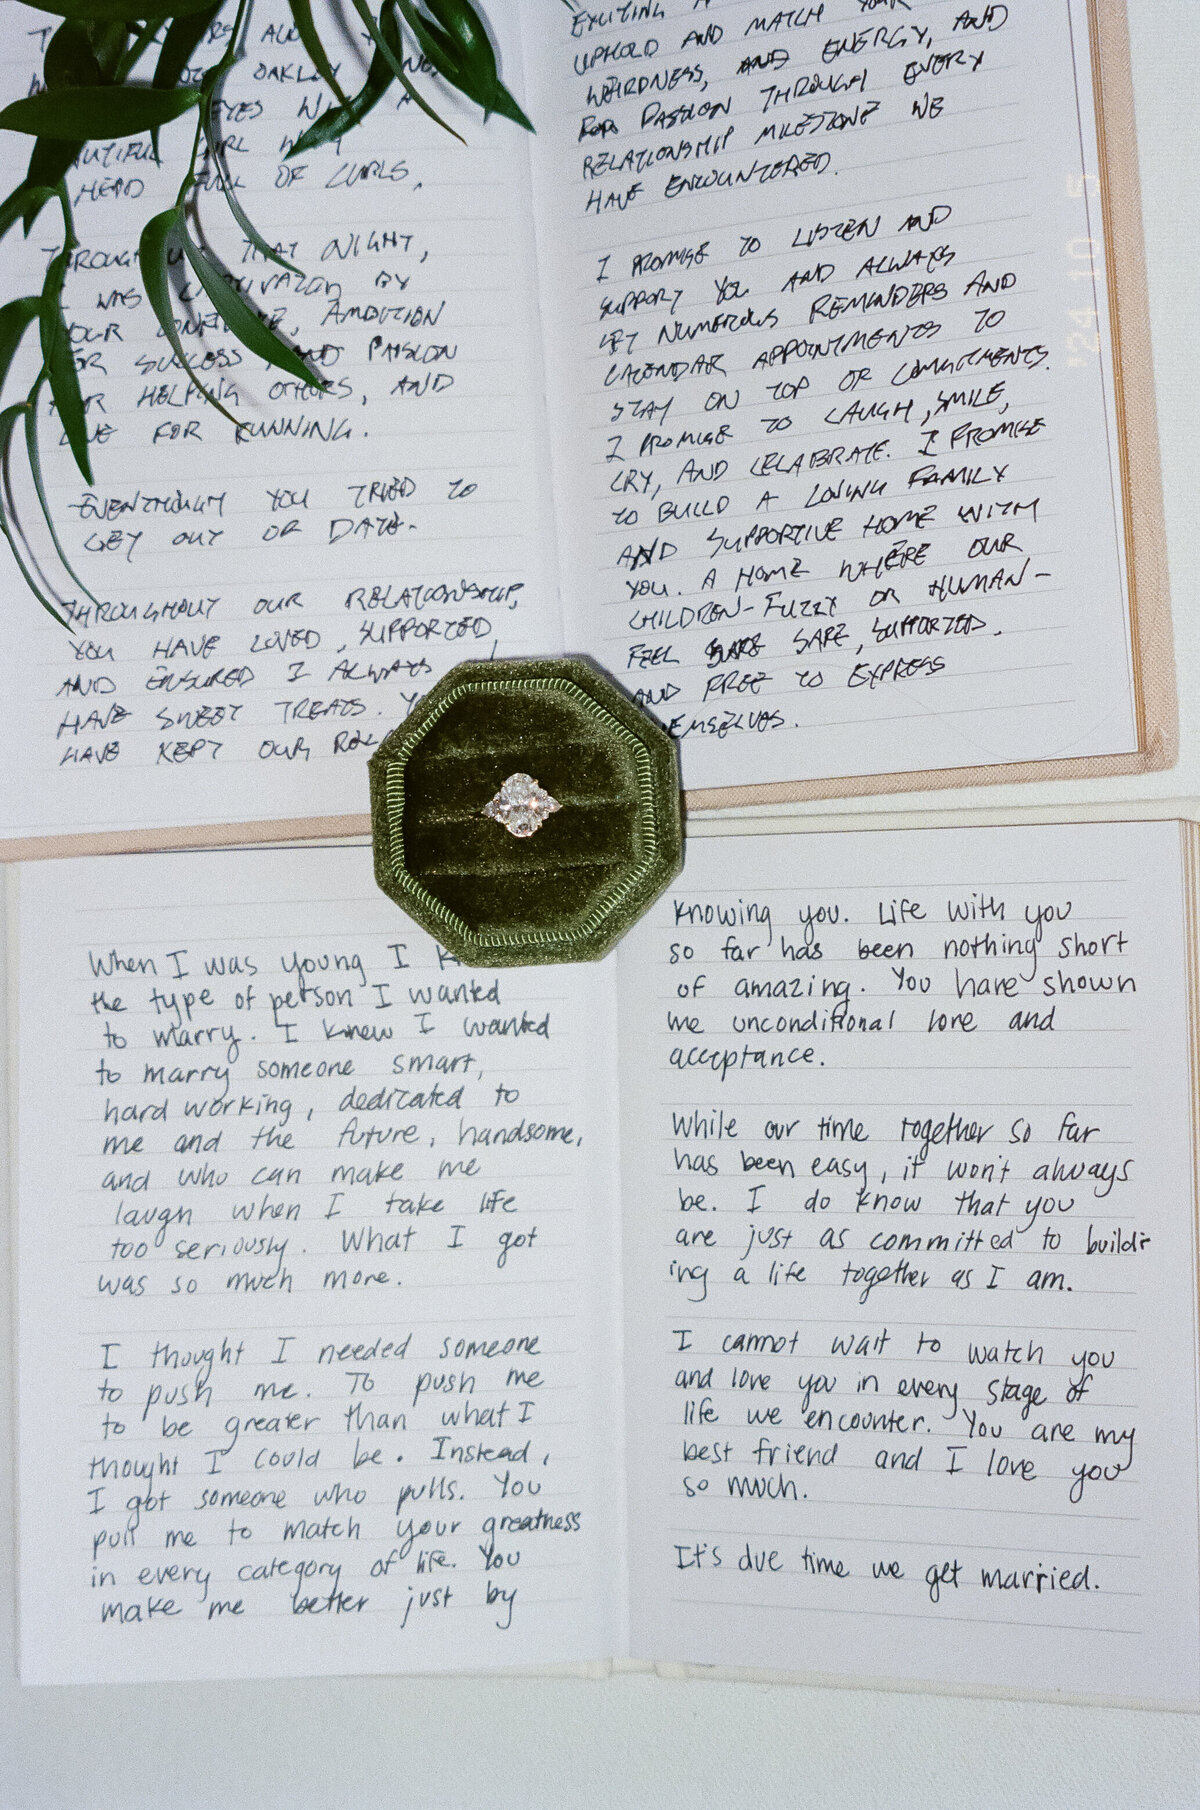 OAKLEY
EYES
GIRL
HEAD FULL OF CURLS,
THAT NIGHT,
I WAS BY
YOUR AMBITION
FOR SUCCESS AND PASSION
FOR HELPING OTHERS, AND
LOVE FOR RUNNING.
EVENTHOUGH YOU TRIED TO
GET OUT OF DATE.
THROUGHOUT OUR RELATIONSHIP,
YOU HAVE LOVED, SUPPORTED,
AND ENSURED I ALWAYS
HAVE SWEET TREATS.
HAVE KEPT OUR
EXCITING
UPHOLD AND MATCH YOUR
WEIRDNESS, AND ENERGY, AND
FOR PASSION THROUGH EVERY
RELATIONSHIP MILESTONE WE
HAVE ENCOUNTERED.
I PROMISE TO LISTEN AND
SUPPORT YOU AND ALWAYS
SET NUMEROUS REMINDERS AND
CALENDAR APPOINTMENTS TO
STAY ON TOP OF COMMITMENTS.
I PROMISE TO LAUGH, SMILE,
CRY, AND CELABRATE. I PROMISE
TO BUILD A LOVING FAMILY
AND SUPPORTIVE HOME WITH
YOU. A HOME WHERE OUR
CHILDREN-FUZZY OR HUMAN-
FEEL SAFE, SUPPORTED,
AND FREE TO EXPRESS
THEMSELVES.
'24 10 5
When I was young I
the type of person I wanted
to marry. I knew I wanted
to marry someone smart,
hard working, dedicated to
me and the future, handsome,
and who can make me
laugh when I take life
too seriously. What I got
was so much more.
I thought I needed someone
to push me. To push me
to be greater than what I
thought I could be. Instead,
I got someone who pulls. You
pull me to match your greatness
in every category of life. You
make me better just by
knowing you. Life with you
so far has been nothing short
of amazing. You have shown
me unconditional love and
acceptance.
While our time together so far
has been easy, it won't always
be. I do know that you
are just as committed to build-
ing a life together as I am.
I cannot wait to watch you
and love you in every stage of
life we encounter. You are my
best friend and I love you
so much.
It's due time we get married.